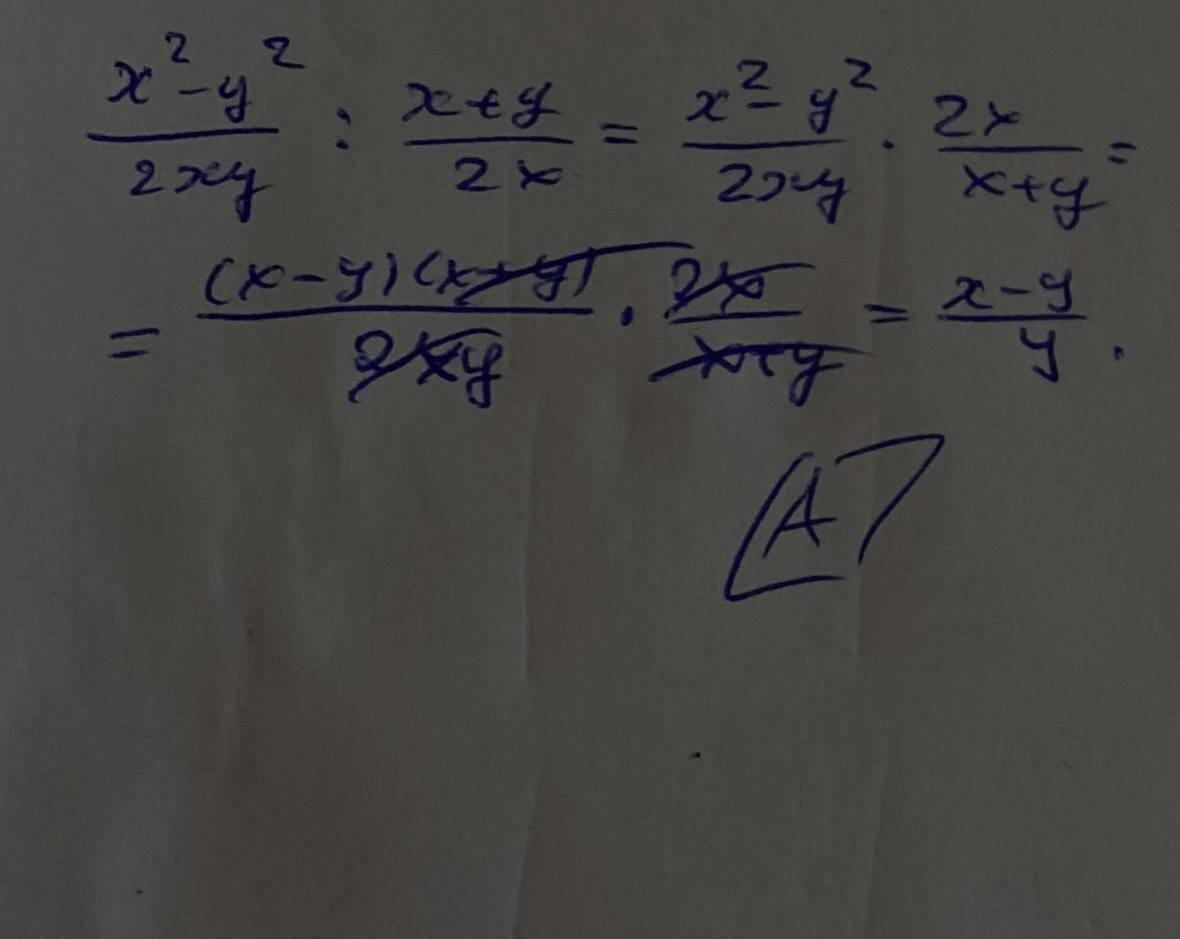 x²-y²/2xy : x+y/2x = x²-y²/2xy · 2x/x+y =
= (x-y)(x+y)/2xy · 2x/x+y = x-y/y.
A